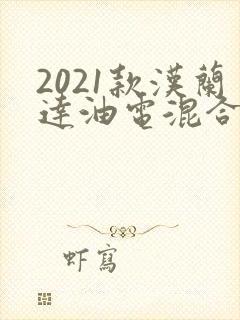 2021款漢蘭
達油電混合
虾寫